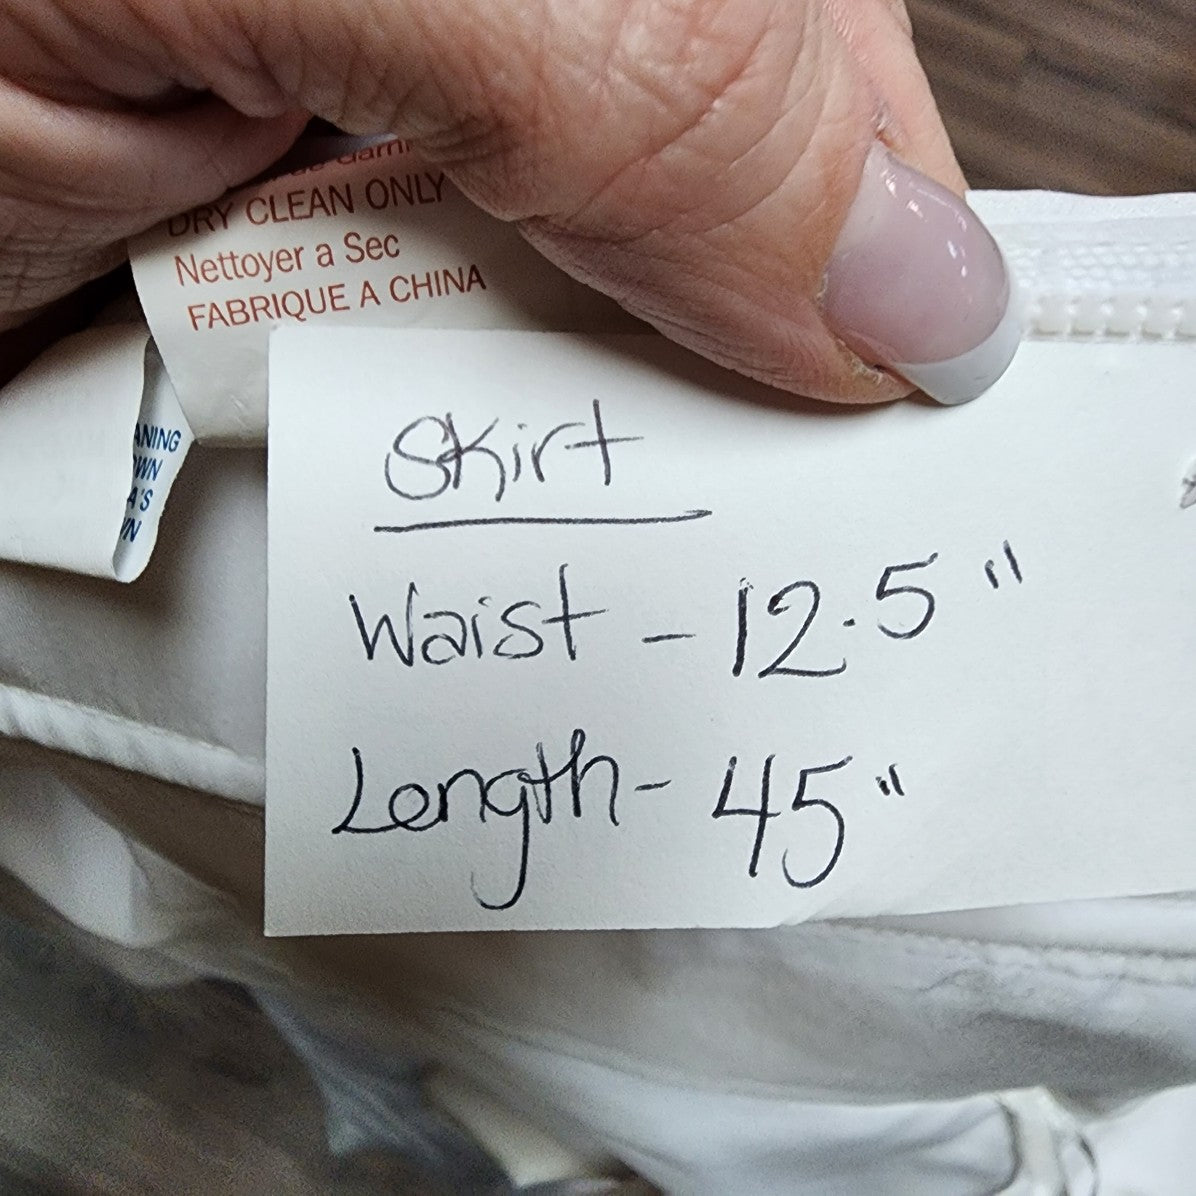 DRY CLEAN ONLY
Nettoyer a Sec
FABRIQUE A CHINA
Skirt
Waist - 12.5"
Length - 45"